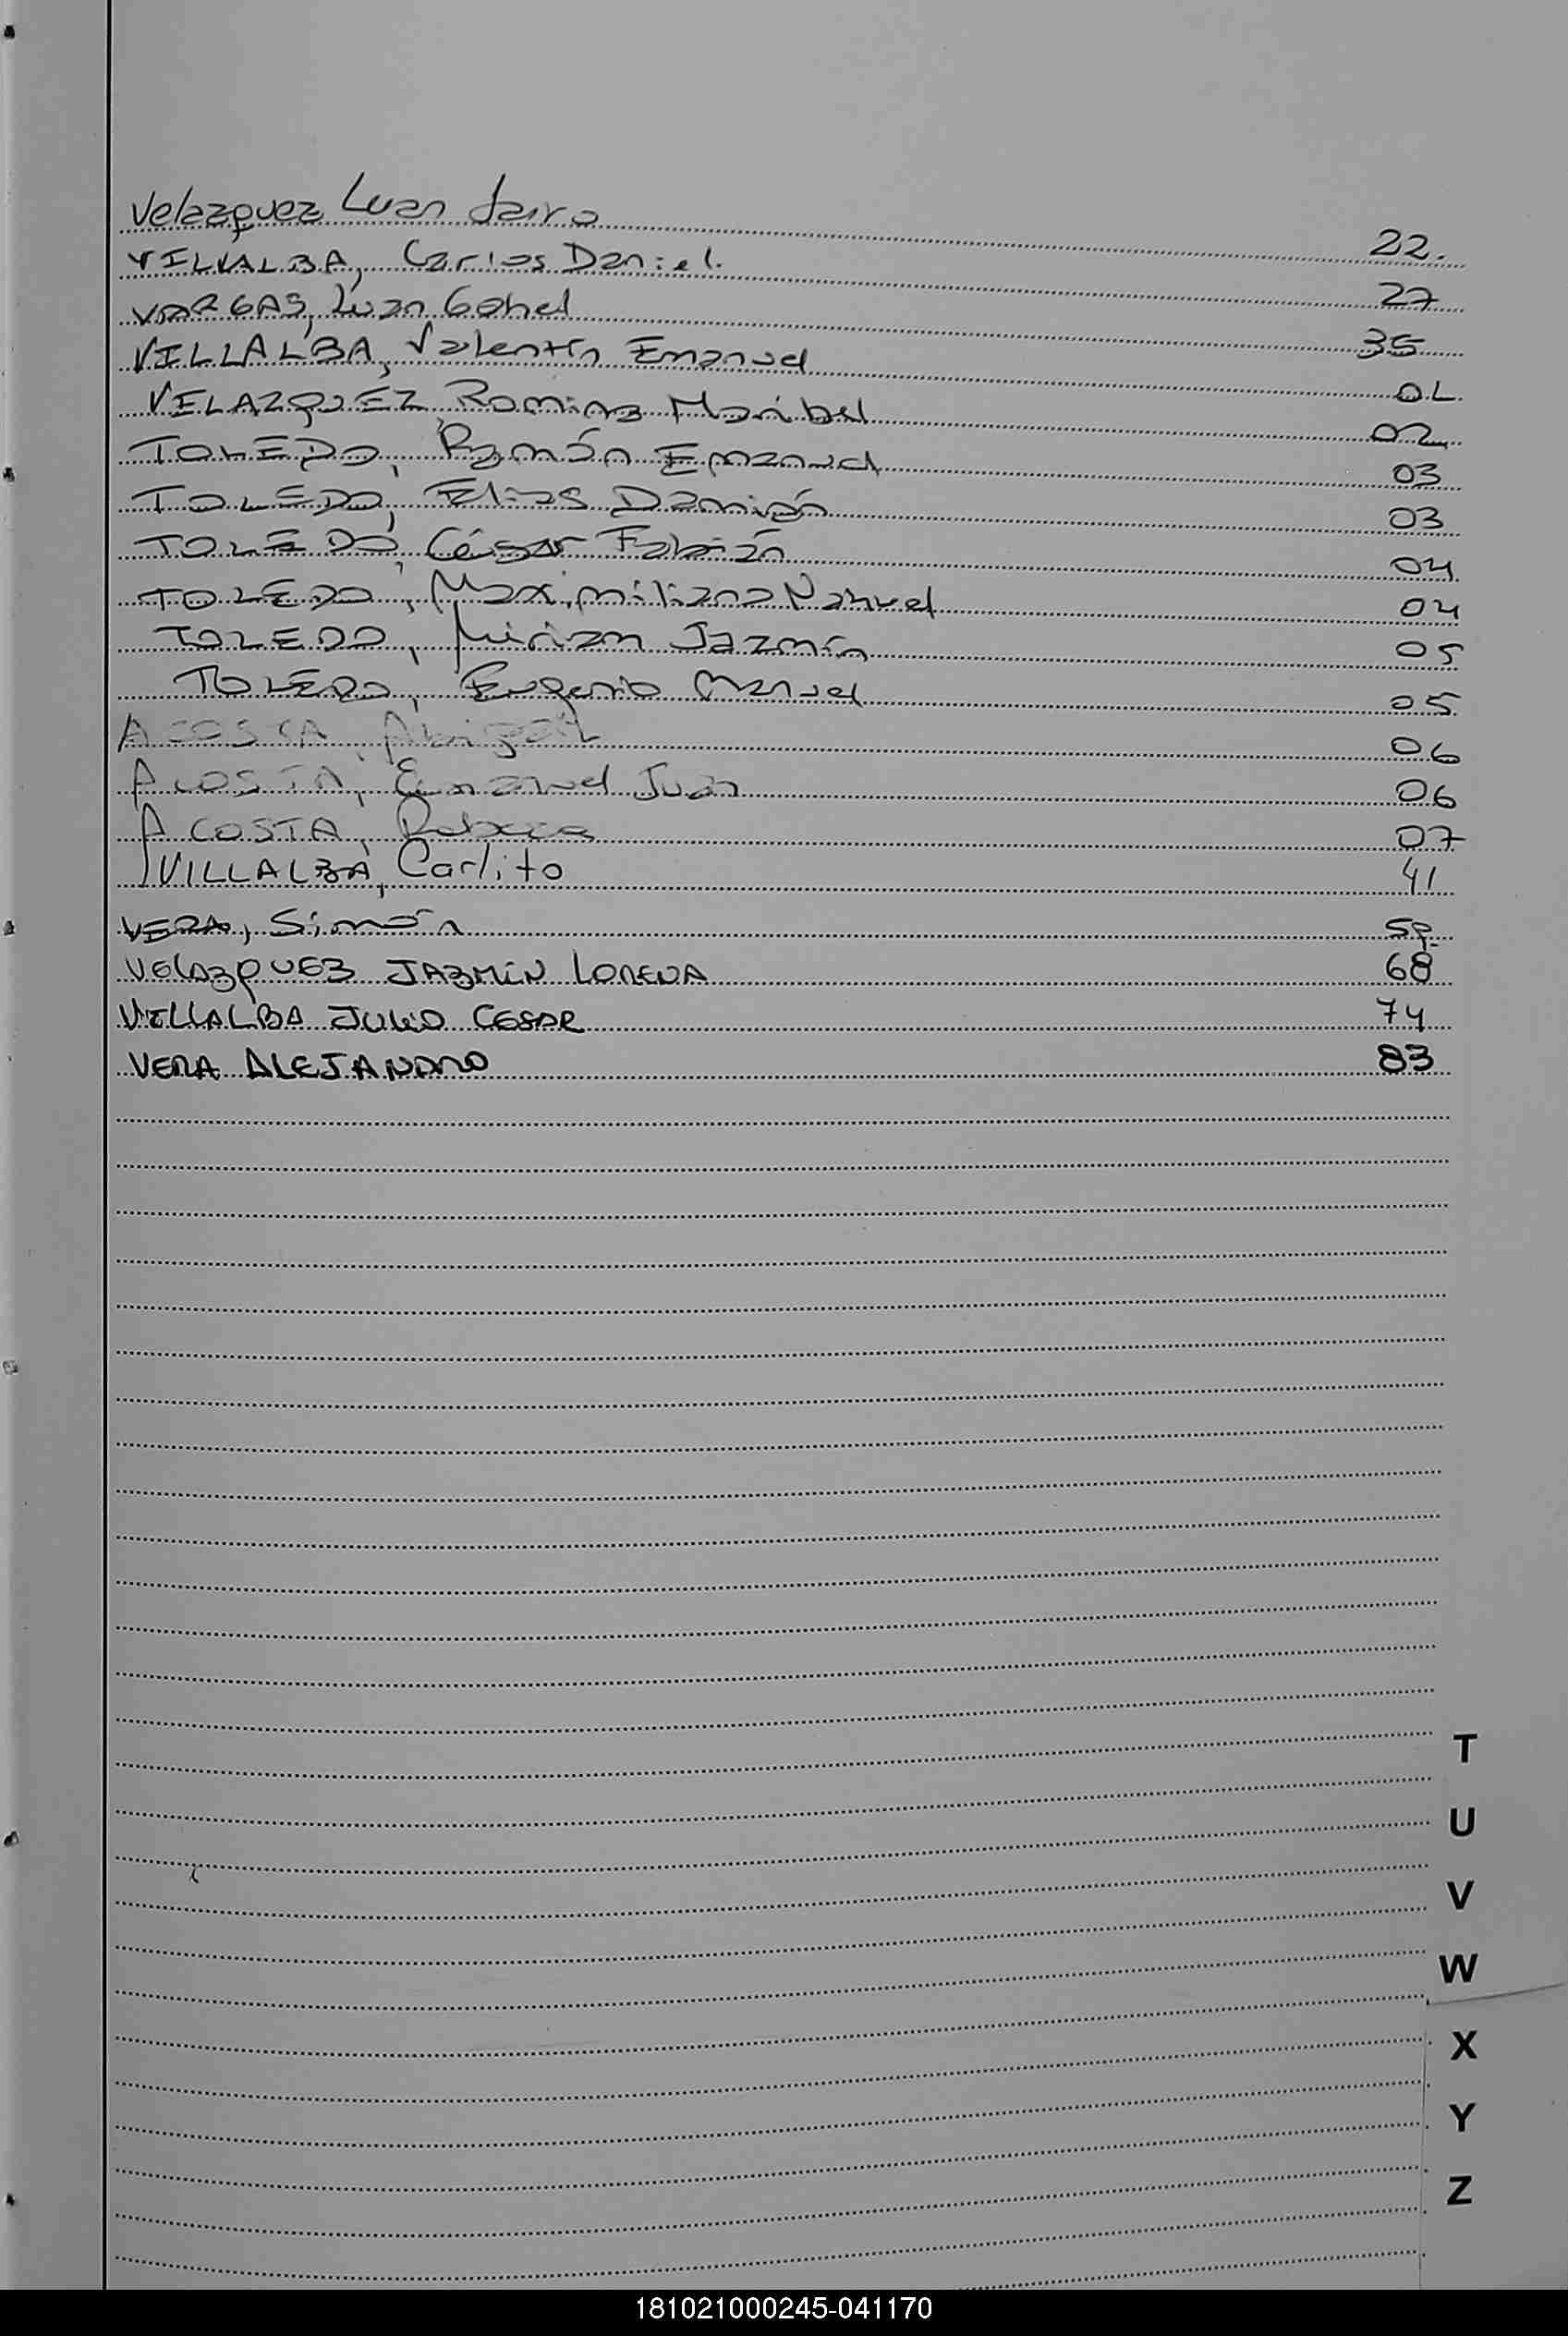 Velazquez Luan Jairo 22.
VILLALBA, Carlos Daniel. 27
VARGAS, Luan Gohel 35
VILLALBA, Valentín Emanuel 01
VELAZQUEZ, Romina Maribel 02
TOLEDO, Ramón Emanuel 03
TOLEDO, Elias Damián 03
TOLEDO, César Fabián 04
TOLEDO, Maximiliano Nahuel 04
TOLEDO, Miriam Jazmín 05
TOLEDO, Eugenio Manuel 05
ACOSTA, Abigail 06
ACOSTA, Emanuel Juan 06
ACOSTA, Rebeca 07
VILLALBA, Carlito 41
VERA, Simón
VELAZQUEZ JAZMIN LORENA 68
VILLALBA JULIO CESAR 74
VERA ALEJANDRO 83
T
U
V
W
X
Y
Z
181021000245-041170